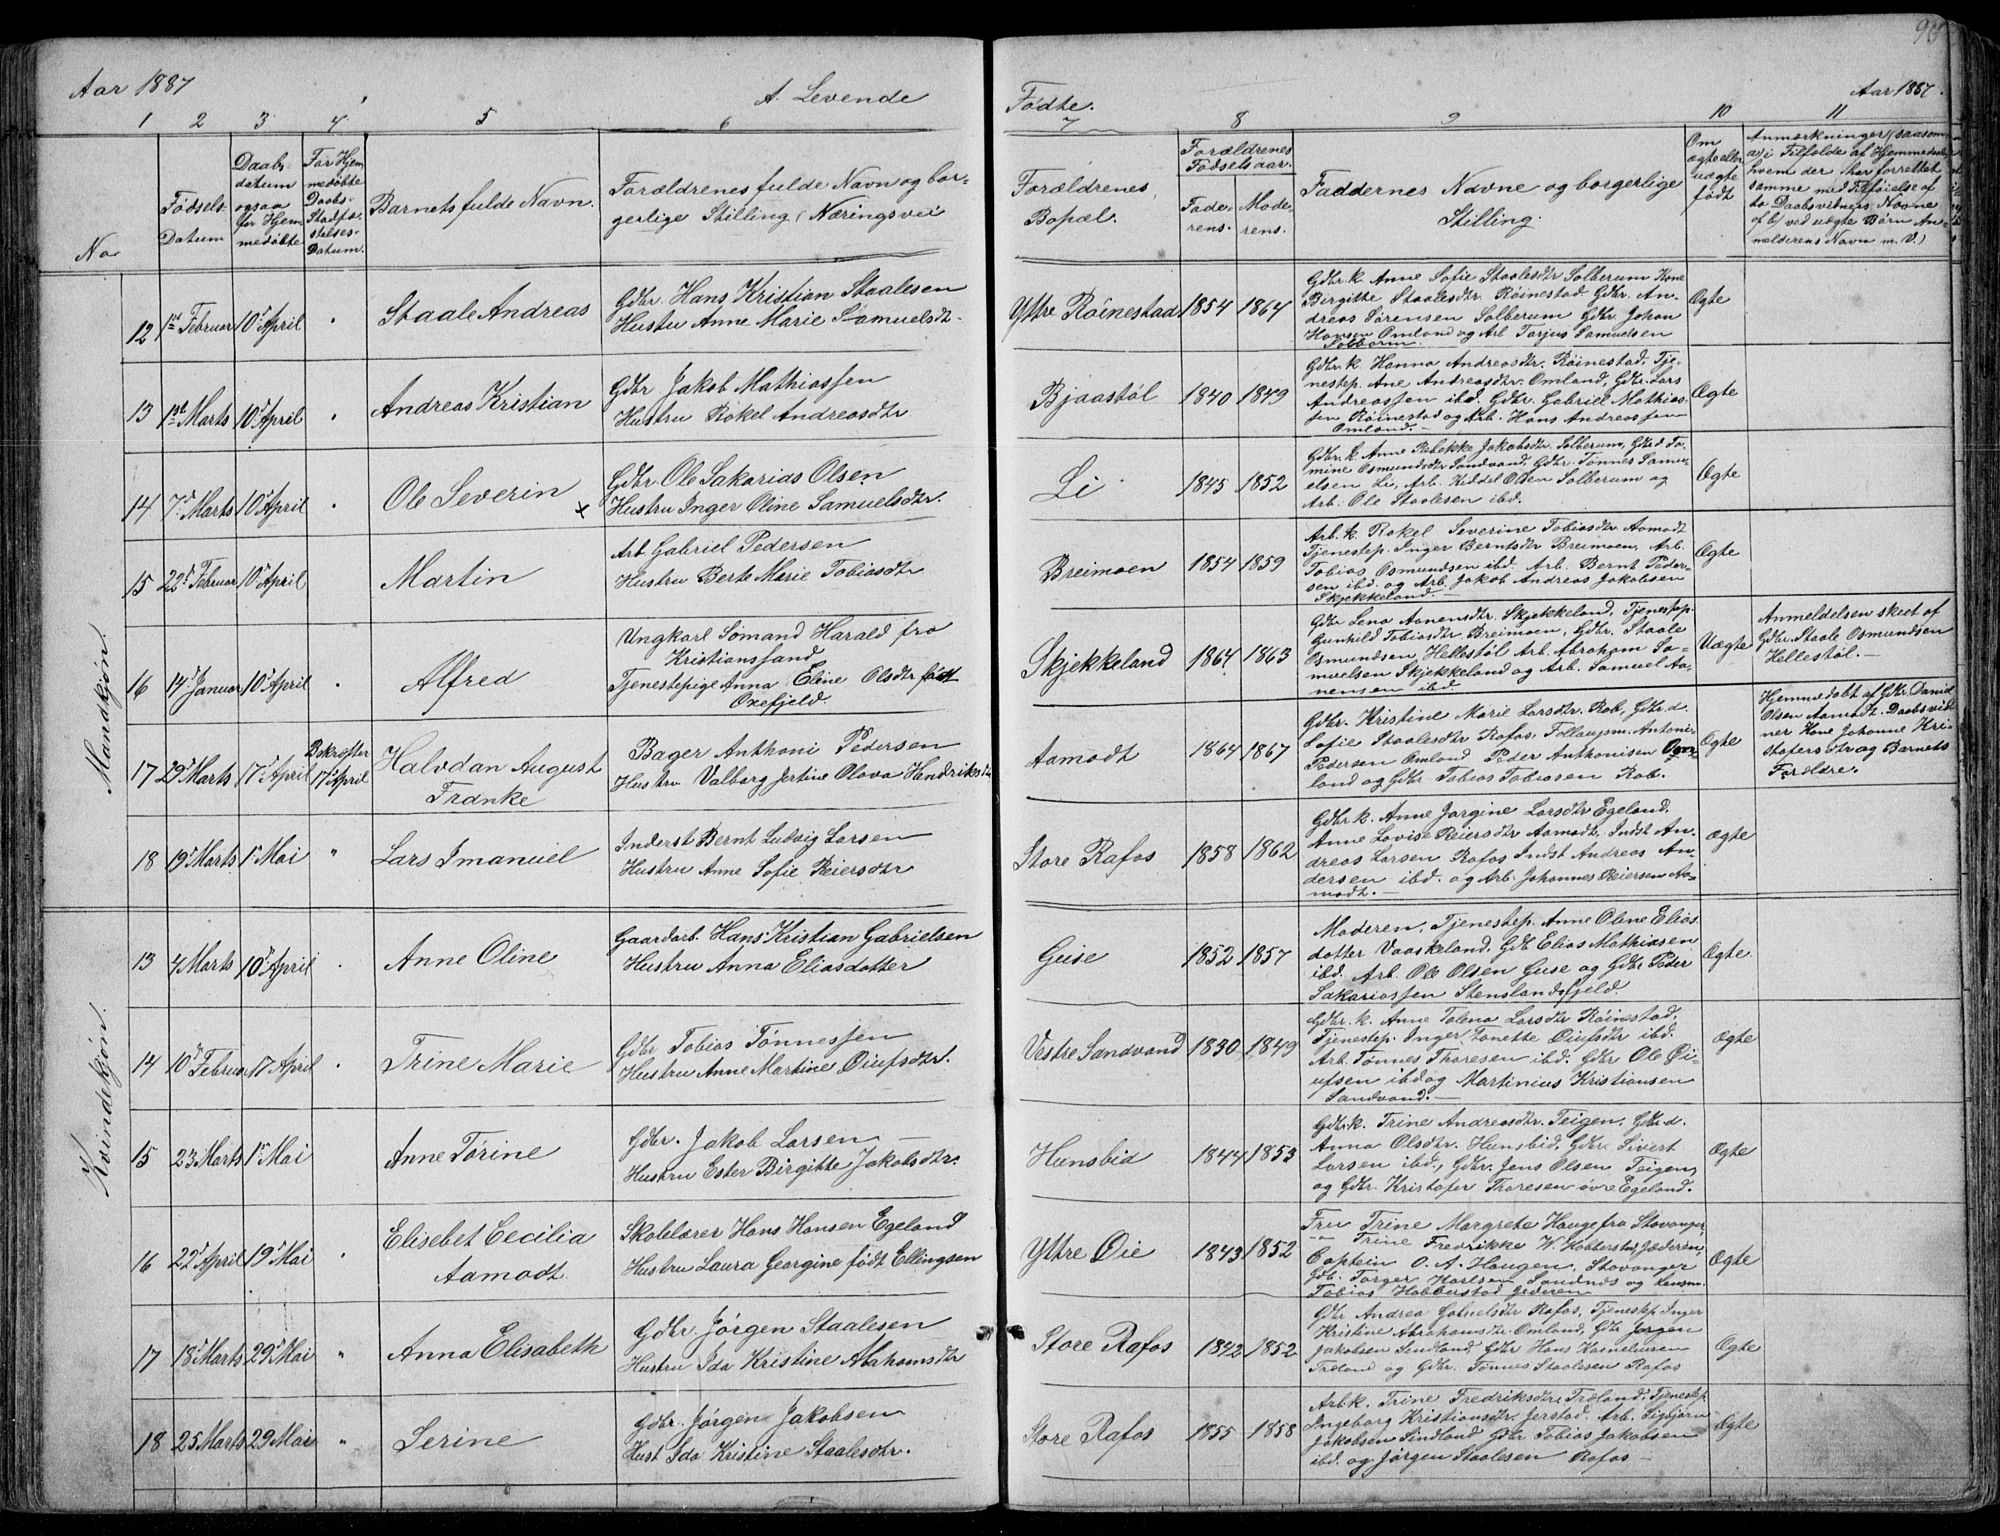 Aar 1887
A. Levende
Fødte.
Aar 1887.
1 2 3 4 5 6 7 8 9 10 11
No
Fødsels-
Datum
Daabs-
datum
ogsaa
for Hjem-
medøbte
For Hjem
medøbte
Daabs-
Stadfæ-
stelses-
Datum.
Barnets fulde Navn.
Forældrenes fulde Navn og bor-
gerlige Stilling (Næringsvei
Forældrenes
Bopæl.
Forældrenes
Fødselsaar.
Fade-
rens.
Mode-
rens.
Faddernes Navne og borgerlige
Stilling.
Om
ægte eller
uægte
født
Anmærkninger (saasom
a) i Tilfælde af Hjemmedaab
hvem der har forrettet
samme med Tilføielse af
to Daabsvidners Navne
og b) ved uægte Børn An-
melderens Navn m. V.)
Mandkjøn.
12 1ste Februar 10d April " Staale Andreas
Gdbr. Hans Kristian Staalesen
Hustru Anne Marie Samuelsdtr.
Yttre Røinestad 1854 1864
Gdbr. k. Anne Sofie Staalesdtr Solberum Kone
Birgitte Staalesdtr. Røinestad Gdbr. An-
dreas Sørensen Solberum Gdbr Johan
Hansen Omland og Arb Tarjus Samuelsen
Solberum.
Ægte
13 1ste Marts 10d April " Andreas Kristian
Gdbr Jakob Mathiassen
Hustru Rakel Andreasdtr
Bjaastøl 1840 1849
Gdbr. k. Hanna Andreasdtr. Røinestad. Tje-
nestep. Ane Andreasdtr. Omland, Gdbr. Lars
Andreassen ibd. Gdbr. Gabriel Mathias-
sen Røinestad og Arb. Hans Andreassen
Omland.
Ægte
14 7d Marts 10d April " Ole Severin x
Gdbr Ole Sakarias Olsen
Hustru Inger Oline Samuelsdtr.
Li 1845 1852
Gdbr. k. Anne Rebekke Jakobsdtr. Solberum, Gdbr d. To-
mine Osmundsdtr Sandvand, Gdbr. Tønnes Samu-
elsen Li, Arb. Kiddel Olsen Solberum og
Arb. Ole Staalesen ibd.
Ægte
15 22d Februar 10d April Martin
Arb. Gabriel Pedersen
Hustru Berte Marie Tobiasdtr
Breimoen 1854 1859
Arb. k. Rakel Severine Tobiasdtr Aamodt
Tjenestep. Inger Berntsdtr Breimoen, Arb.
Tobias Osmundsen ibd. Arb. Bernt Peder-
sen ibd. og Arb. Jakob Andreas Jakobsen
Skjekkeland.
Ægte
16 14d Januar 10d April " Alfred
Ungkarl Sømand Harald fra
Kristianssand
Tjenestepige Anna Eline Olsdtr født
Oxefjeld.
Skjekkeland 1864 1863
Gdbr Lena Aanensdtr. Skjekkeland, Tjenestep.
Gunhild Tobiasdtr Breimoen, Gdbr. Staale
Osmundsen Hellestøl Arb. Abraham Sa-
muelsen Skjekkeland og Arb. Samuel Aa-
nensen ibd.
Uægte
Anmeldelsen skeet af
Gdbr. Staale Osmundsen
Hellestøl.
17 29d Marts 17d April Bekræftet
17d April Halvdan August
Franke
Bager Anthoni Pedersen
Hustru Valborg Jertine Olava Hendriksdtr
Aamodt 1864 1867
Gdbr. Kristine Marie Larsdtr. Rob, Gdbr. d.
Sofie Staalesdtr Rafos. Antoni
Pedersen Omland Peder Anthonisen Om-
land og Gdbr Tobias Tobiasen Rob.
Ægte
Hjemmedøbt af Gdbr. Daniel
Olsen Aamodt. Daabsvid-
ner Kone Johanne Kri-
stofersdtr og Barnets
Forældre.
18 19d Marts 1ste Mai " Lars Imanuel
Inderst Bernt Ludvig Larsen
Hustru Anne Sofie Reiersdtr
Store Rafos 1858 1862
Gdbr k. Anne Jorgine Larsdtr Egeland.
Anne Lovise Reiersdtr Aamodt. Indst An-
dreas Larsen Rafos Indst Andreas An-
dersen ibd. og Arb. Johannes Reiersen Aa-
modt.
Ægte
Kvindekjøn.
13 4 Marts 10d April " Anne Oline
Gaardarb. Hans Kristian Gabrielsen
Hustru Anna Eliasdotter
Guse 1852 1857
Moderen, Tjenestep. Anne Oline Elias
dotter Vaaskeland. Gdb Elias Mathiasen
ibd. Arb. Ole Olsen Guse og Gdbr Peder
Sakariassen Stenslandsfjeld.
Ægte.
14 10d Februar 17 April " Trine Marie
Gdbr Tobias Tønnessen
Hustru Anne Martine Øiufsdtr.
Vestre Sandvand 1830 1849
Gdbr. k. Anne Tolena Larsdtr Røinestad.
Tjenestep. Inger Tonette Øiufsdtr ibd.
Arb. Tønnes Thoresen ibd. Gdbr Ole Øi-
ufsen ibd og Martinius Kristiansen
Sandvand.
Ægte
15 23 Marts 1ste Mai Anne Tørine
Gdbr. Jakob Larsen
Hustru Ester Birgitte Jakobsdtr.
Hunsbid 1844 1853
Gdbr. k. Trine Andreasdtr. Teigen, Gdbr. d.
Anna Olsdtr. Hunsbid, Gdbr. Sivert
Larsen ibd., Gdbr. Jens Olsen Teigen,
og Gdbr. Kristofer Thoresen øvre Egeland.
Ægte
16 22d April 19d Mai " Elisebet Cecilia
Aamodt
Skolelærer Hans Hansen Egeland
Hustru Laura Georgine født Ellingsen
Yttre Øie 1843 1852
Fru Trine Margrete Hauge fra Stavanger,
— " — Trine Fredrikke W. Hobberstad, Jæderen,
Captein O. A. Haugen, Stavanger
Gdb. Torger Karlsen Sandnæs og Lensm.
Tobias Hobberstad Jæderen
Ægte
17 18d Marts 29d Mai " Anna Elisabeth
Gdbr. Jørgen Staalesen
Hustru Ida Kristine Abahamsdtr
Store Rafos 1842 1852
Gdbr Andrea Samuelsdtr Rafos, Tjenestep Inger
Kristine Abrahamsdtr. Omland, Gdbr Jørgen
Jakobsen Sindland Gdbr Hans Korneliusen
Træland og Gdbr. Tønnes Staalesen Rafos
Ægte
18 25 Marts 29 Mai " Serine
Gdbr. Jørgen Jakobsen
Hust Ida Kristine Staalesdtr.
Store Rafos 1855 1858
Arb k. Trine Fredriksdtr, Træland, Tjenestep
Ingeborg Kristiansdtr Jerstad. Arb. Sigbjørn
Jakobsen Sindland Gdbr Tobias Jakobsen
ibd. og Jørgen Staalesen Rafos
Ægte